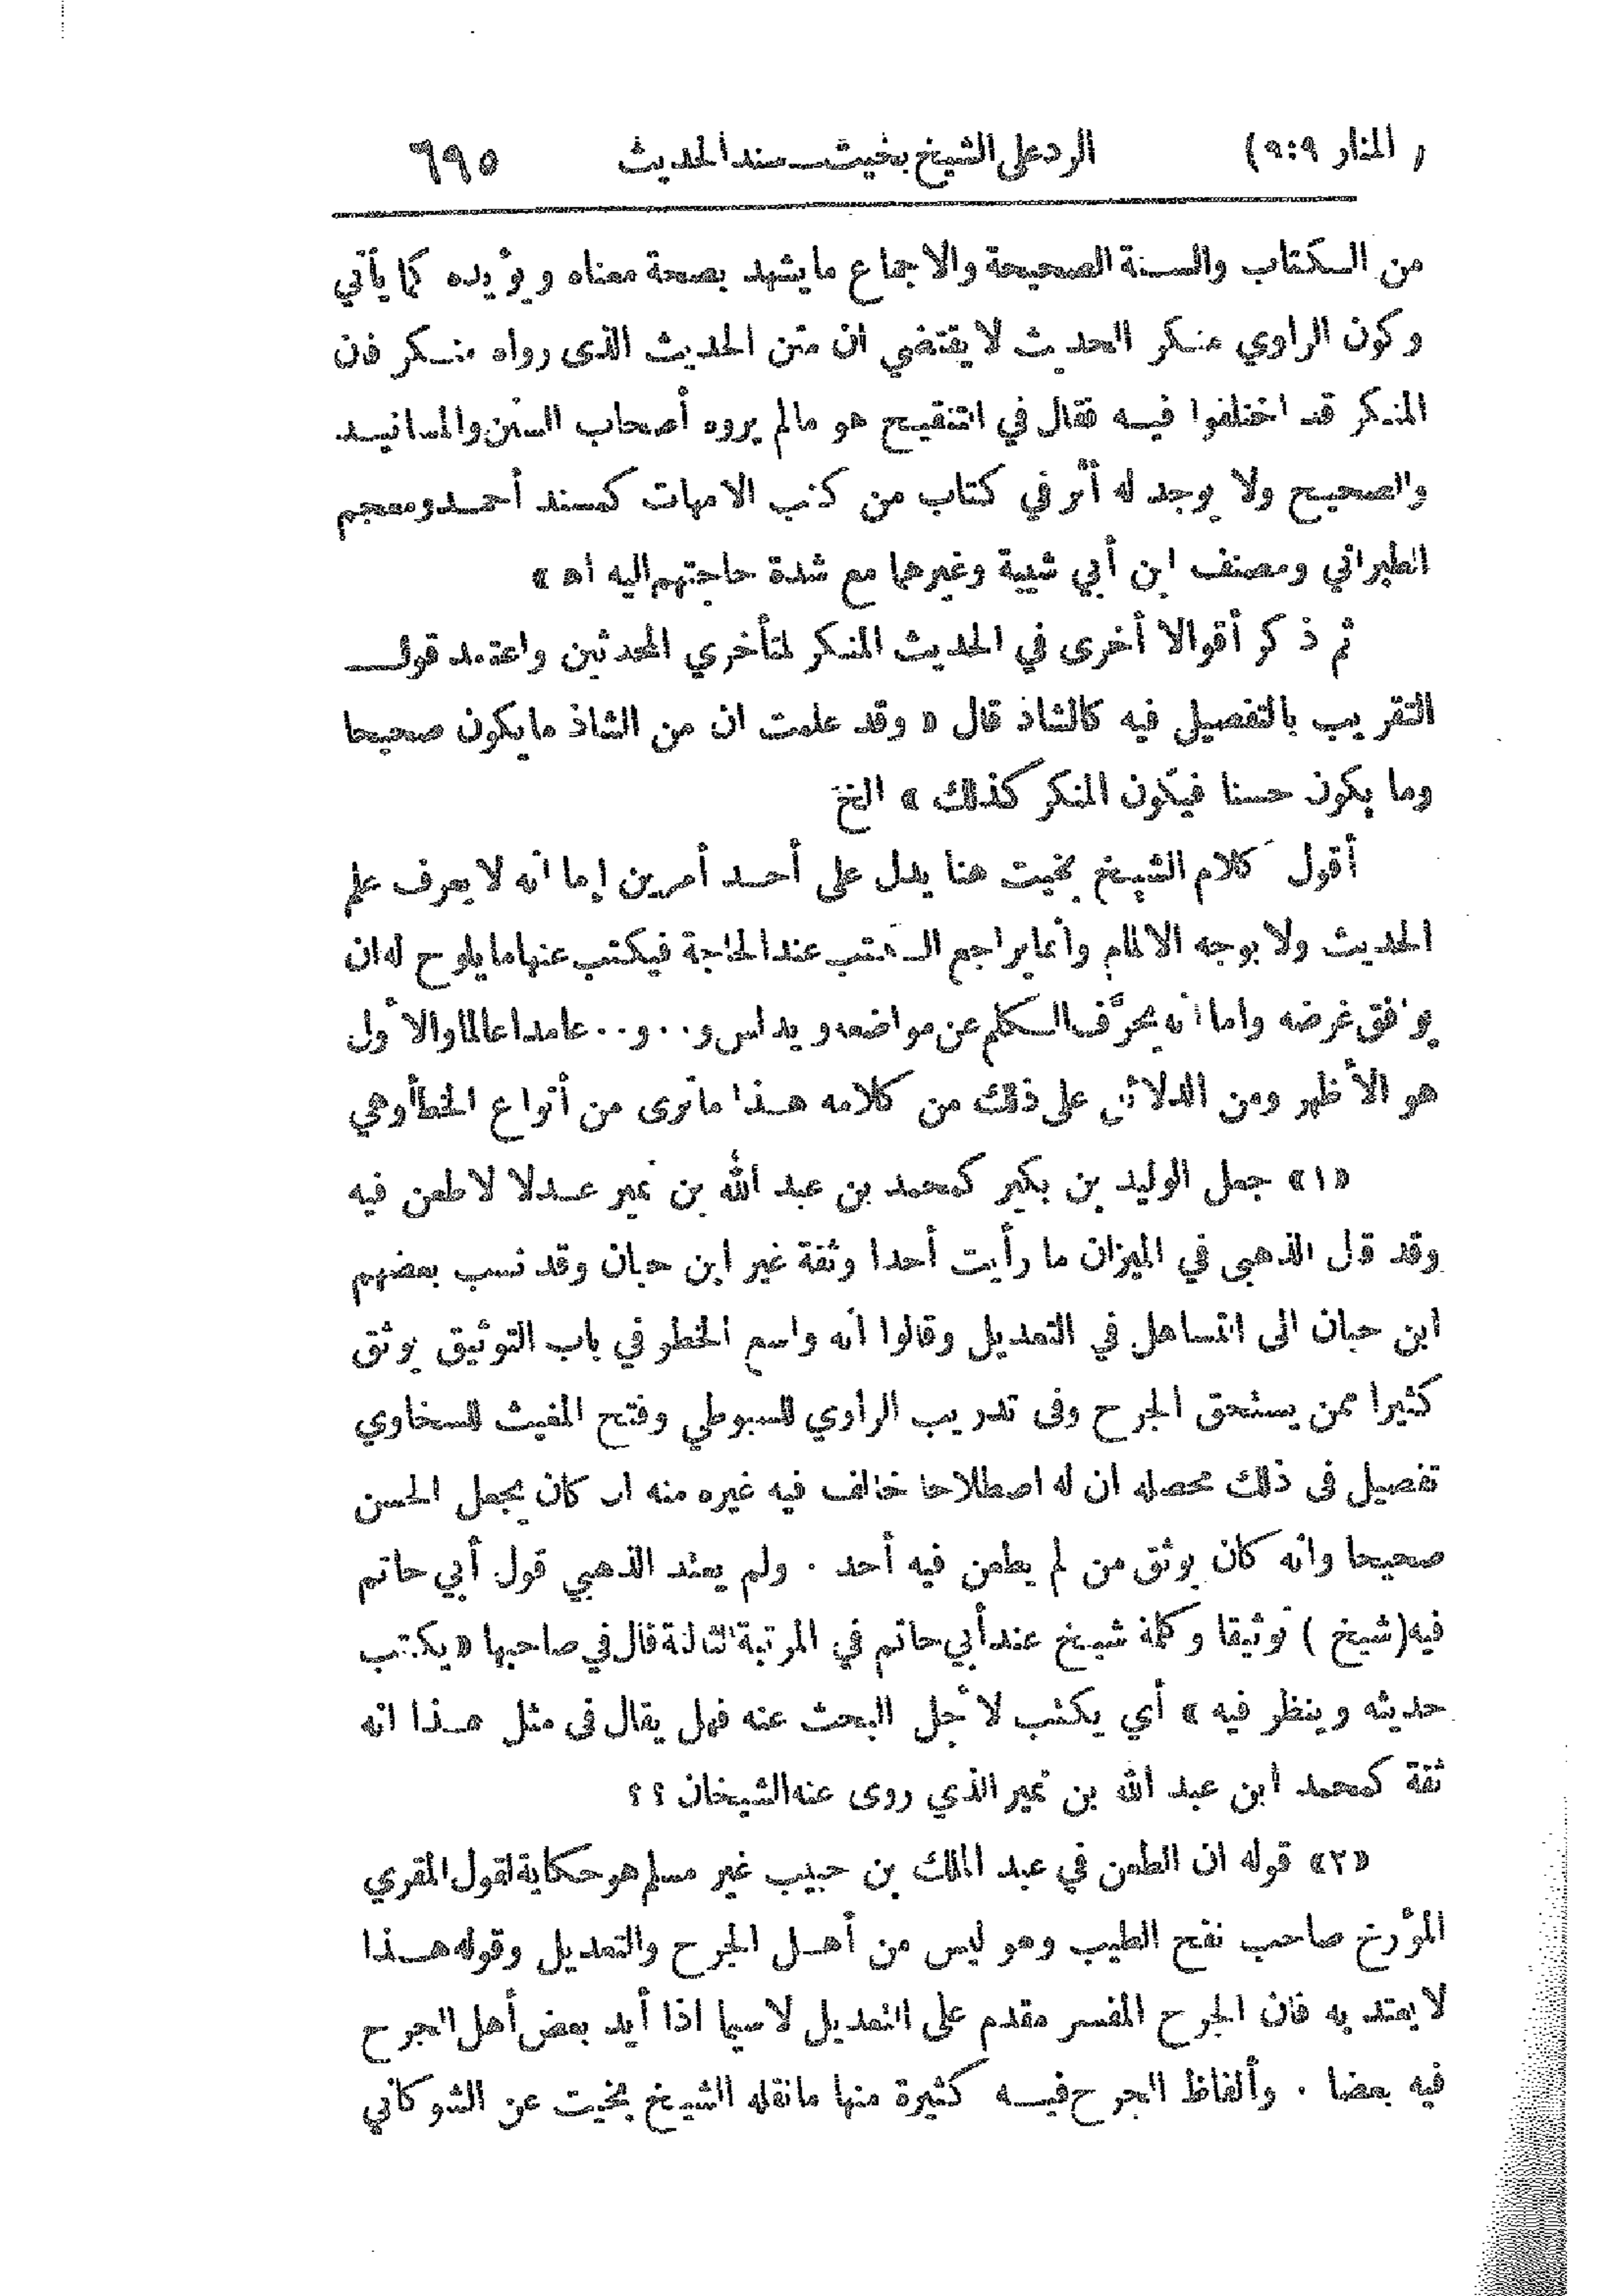 ( المنار ٩:٩ ) الرد على الشيخ بخيت ــ سند الحديث ٦٩٥
من الكتاب والسنة الصحيحة والاجماع ما يشهد بصحة معناه ويؤيده كما يأتي
وكون الراوي منكر الحديث لا يقتضي ان متن الحديث الذى رواه منكر فان
المنكر قد اختلفوا فيه فقال في التنقيح هو مالم يروه أصحاب السنن والمسانيد
والصحيح ولا يوجد له أثر في كتاب من كتب الامهات كمسند أحمد ومعجم
الطبراني ومصنف ابن أبي شيبة وغيرها مع شدة حاجتهم اليه اهـ »
ثم ذكر أقوالا أخرى في الحديث المنكر لمتأخري المحدثين واعتمد قول
التقريب بالتفصيل فيه كالشاذ قال « وقد علمت ان من الشاذ ما يكون صحيحا
وما يكون حسنا فيكون المنكر كذلك » الخ
أقول كلام الشيخ بخيت هنا يدل على أحد أمرين إما انه لا يعرف علم
الحديث ولا بوجه الالمام وانما يراجع الكتب عند الحاجة فيكتب عنها ما يلوح له ان
يوافق غرضه واما انه يحرَّف الكلم عن مواضعه ويدلس و . . و . . عامدا عالما والأول
هو الأظهر ومن الدلائل على ذلك من كلامه هذا ما ترى من أنواع الخطأ وهي
« ١ » جعل الوليد بن بكير كمحمد بن عبد الله بن نمير عدلا لا طعن فيه
وقد قال الذهبي في الميزان ما رأيت أحدا وثقة غير ابن حبان وقد نسب بعضهم
ابن حبان الى التساهل في التعديل وقالوا انه واسع الخطو في باب التوثيق يوثق
كثيرا ممن يستحق الجرح وفى تدريب الراوي للسيوطي وفتح المغيث للسخاوي
تفصيل فى ذلك محصله ان له اصطلاحا خالف فيه غيره منه ان كان يجعل الحسن
صحيحا وانه كان يوثق من لم يطعن فيه أحد . ولم يعتد الذهبي قول أبي حاتم
فيه (شيخ ) توثيقا وكلمة شيخ عند أبي حاتم في المرتبة الثالثة قال في صاحبها « يكتب
حديثه وينظر فيه » أي يكتب لأجل البحث عنه فهل يقال فى مثل هذا انه
ثقة كمحمد ابن عبد الله بن نمير الذي روى عنه الشيخان ؟ ؟
« ٢ » قوله ان الطعن في عبد الملك بن حبيب غير مسلم هو حكاية لقول المقري
المؤرخ صاحب نفح الطيب وهو ليس من أهل الجرح والتعديل وقوله هذا
لا يعتد به فان الجرح المفسر مقدم على التعديل لا سيما اذا أيد بعض أهل الجرح
فيه بعضا . وألفاظ الجرح فيه كثيرة منها ما نقله الشيخ بخيت عن الشوكاني